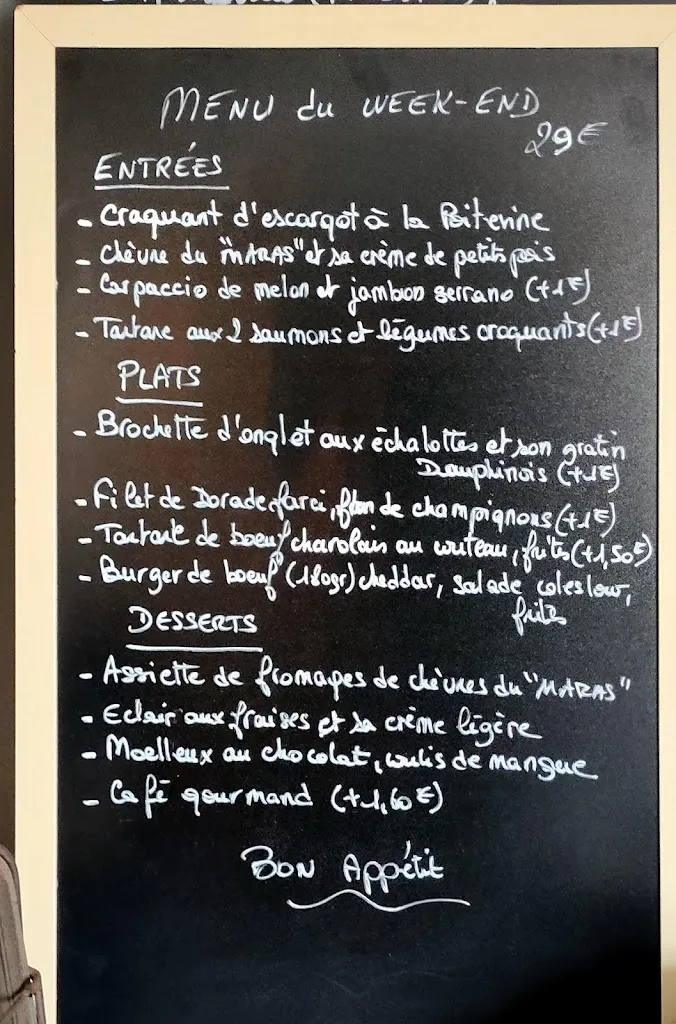 MENU du WEEK-END
29€
ENTRÉES
- Craquant d'escargot à la Poitevine
- Chèvre du "MARAS" et sa crème de petits pois
- Carpaccio de melon et jambon serrano (+1€)
- Tartare aux 2 saumons et légumes croquants (+1€)
PLATS
- Brochette d'onglet aux échalottes et son gratin
Dauphinois (+1€)
- Filet de Dorade farci, flan de champignons (+1€)
- Tartare de boeuf charolais au couteau, frites (+1,50€)
- Burger de boeuf (180gr) cheddar, salade coleslow,
frites
DESSERTS
- Assiette de fromages de chèvres du "MARAS"
- Eclair aux fraises et sa crème légère
- Moelleux au chocolat, coulis de mangue
- Café gourmand (+1,60€)
BON Appétit